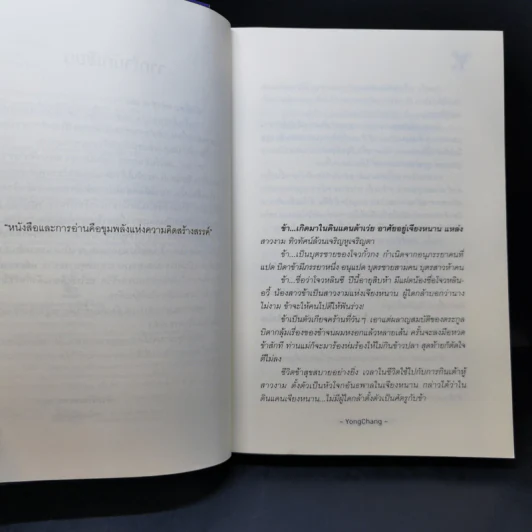 "หนังสือและการอ่านคือขุมพลังแห่งความคิดสร้างสรรค์"
ข้า...เกิดมาในดินแดนต้าเว่ย อาศัยอยู่เจียงหนาน แหล่ง
สาวงาม ทิวทัศน์ล้วนเจริญหูเจริญตา
ข้า...เป็นบุตรชายของโจวกั๋วกง กำเนิดจากอนุภรรยาคนที่
แปด บิดาข้ามีภรรยาหนึ่ง อนุแปด บุตรชายสามคน บุตรสาวห้าคน
ข้า...ชื่อว่าโจวหลินชี ปีนี้อายุสิบห้า มีแฝดน้องชื่อโจวหลิน-
อวี้ น้องสาวข้าเป็นสาวงามแห่งเจียงหนาน ผู้ใดกล้าบอกว่านาง
ไม่งาม ข้าจะให้คนไปตีให้ฟันร่วง!
ข้าเป็นตัวเกียจคร้านที่วันๆ เอาแต่ผลาญสมบัติของตระกูล
บิดากลุ้มเรื่องของข้าจนผมหงอกแล้วหลายเส้น ครั้นจะลงมือหวด
ข้าสักที ท่านแม่ก็จะมาร้องห่มร้องไห้ไม่กินข้าวปลา สุดท้ายก็ตัดใจ
ตีไม่ลง
ชีวิตข้าสุขสบายอย่างยิ่ง เวลาในชีวิตใช้ไปกับการกินเต้าหู้
สาวงาม ตั้งตัวเป็นหัวโจกอันธพาลในเจียงหนาน กล่าวได้ว่าใน
ดินแดนเจียงหนาน...ไม่มีผู้ใดกล้าตั้งตัวเป็นศัตรูกับข้า
~ YongChang ~